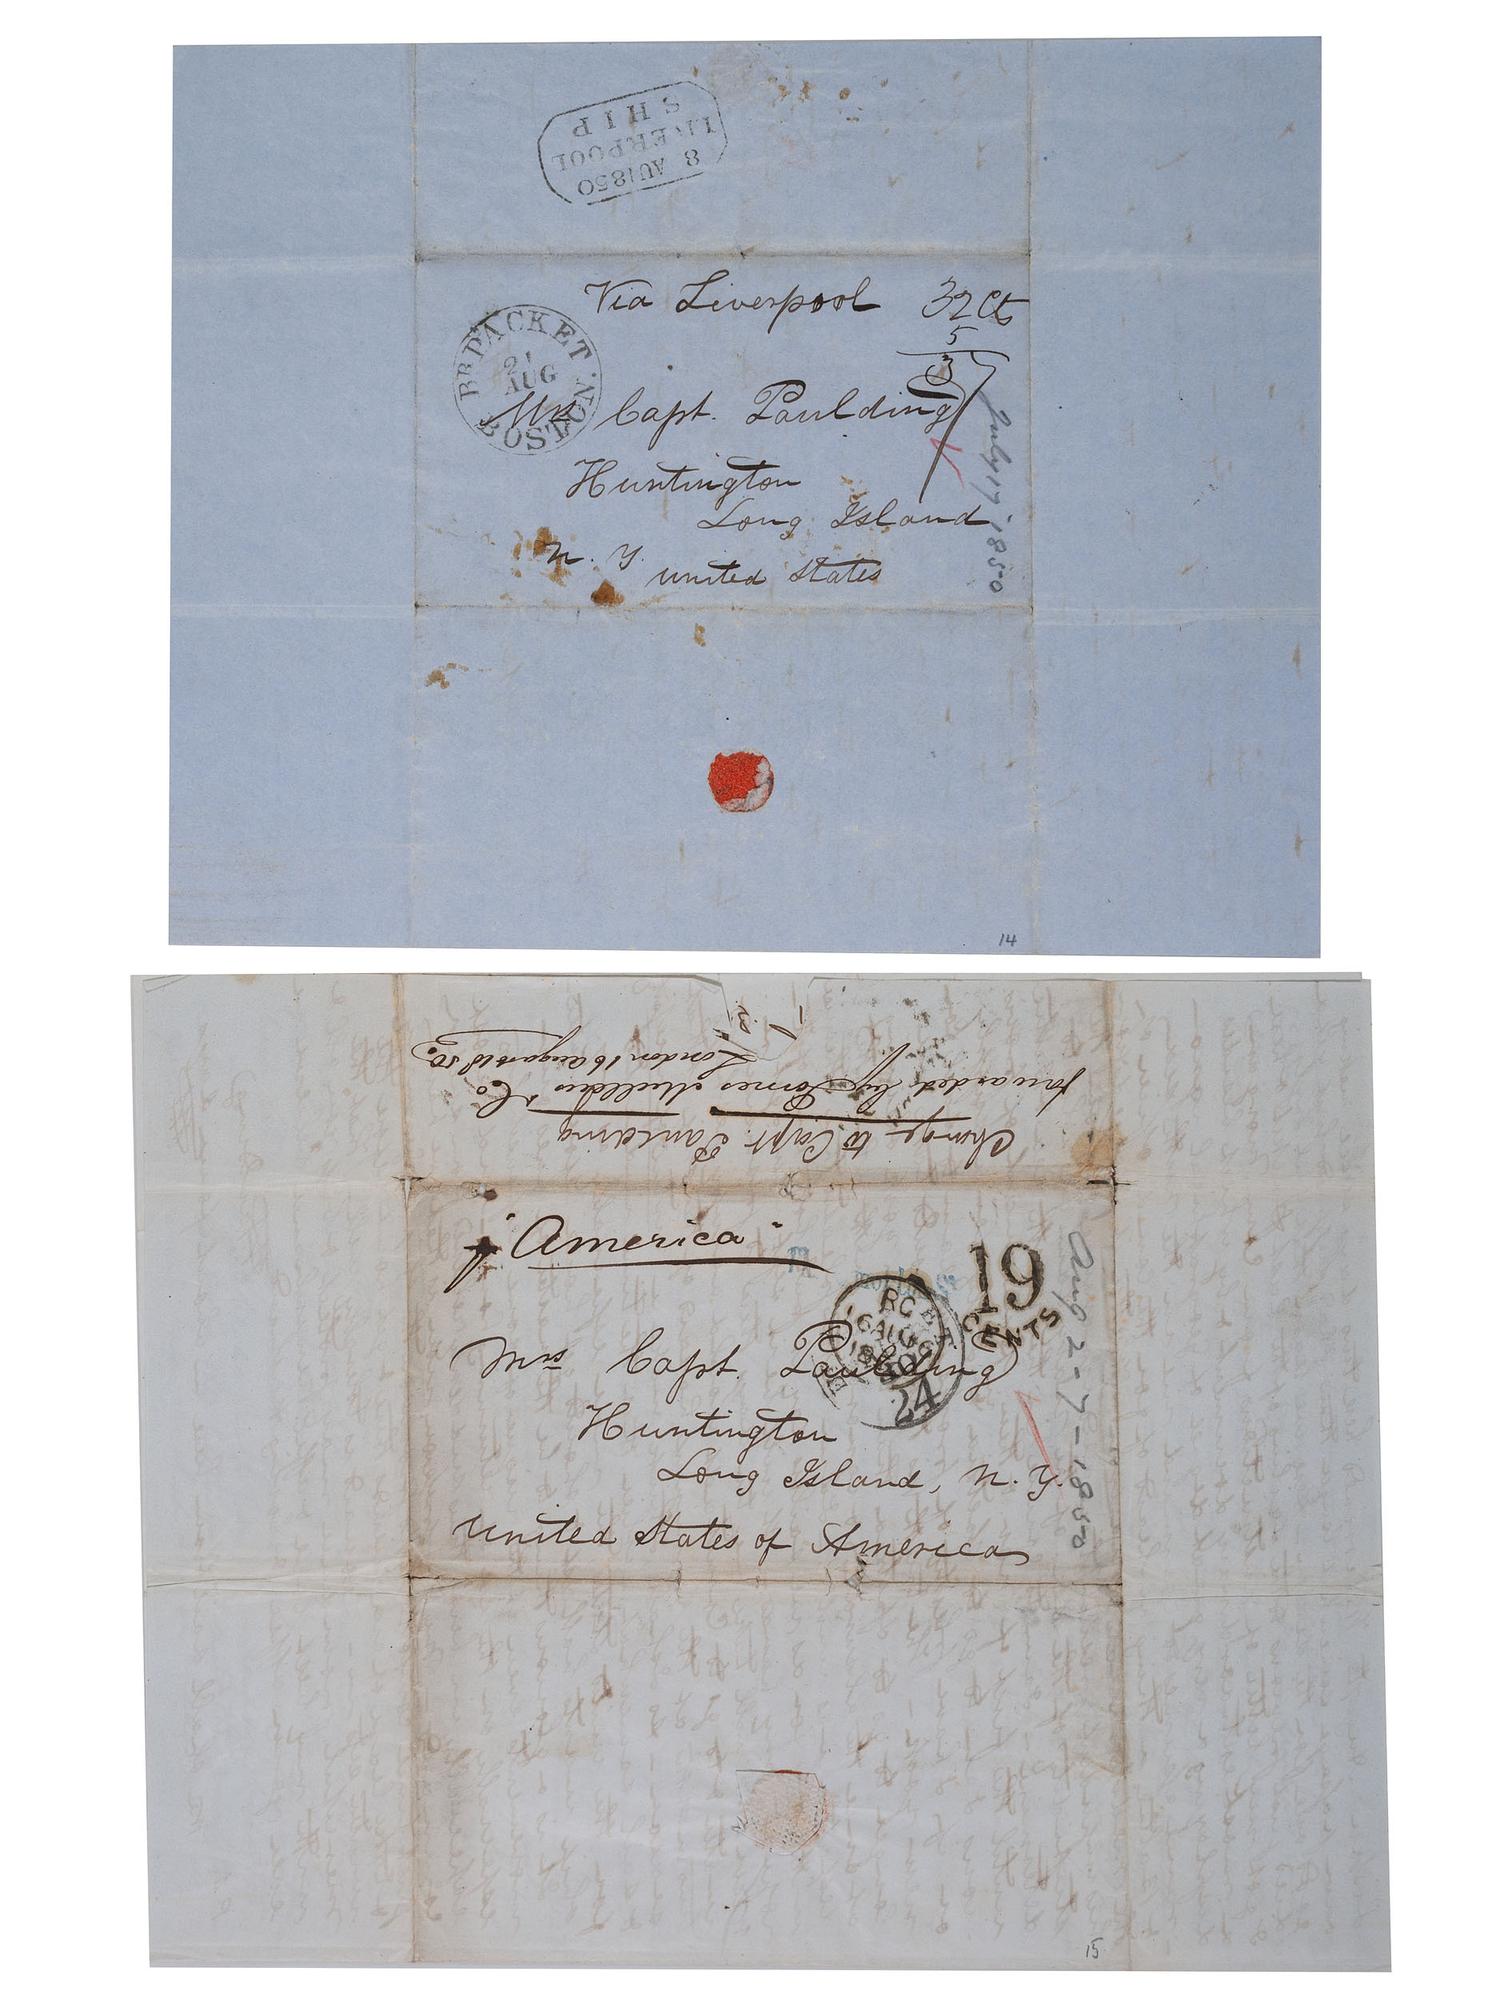 8 AU 1850
LIVERPOOL
SHIP
Via Liverpool 32 Cts
5
3
BR PACKET
21
AUG
BOSTON
Mrs Capt. Paulding
Huntington
Long Island
N. Y. United States
July 17 - 1850
14
London 16 August 1850
forwarded by James & Co
Charge to Capt Paulding
"America"
19
CENTS
16 AU 16
1850
24
Mrs Capt. Paulding
Huntington
Long Island, N. Y.
United States of America
Aug 2-7-1850
15